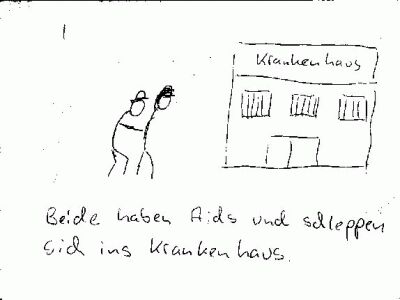 Krankenhaus
Beide haben Aids und schleppen
sich ins Krankenhaus.